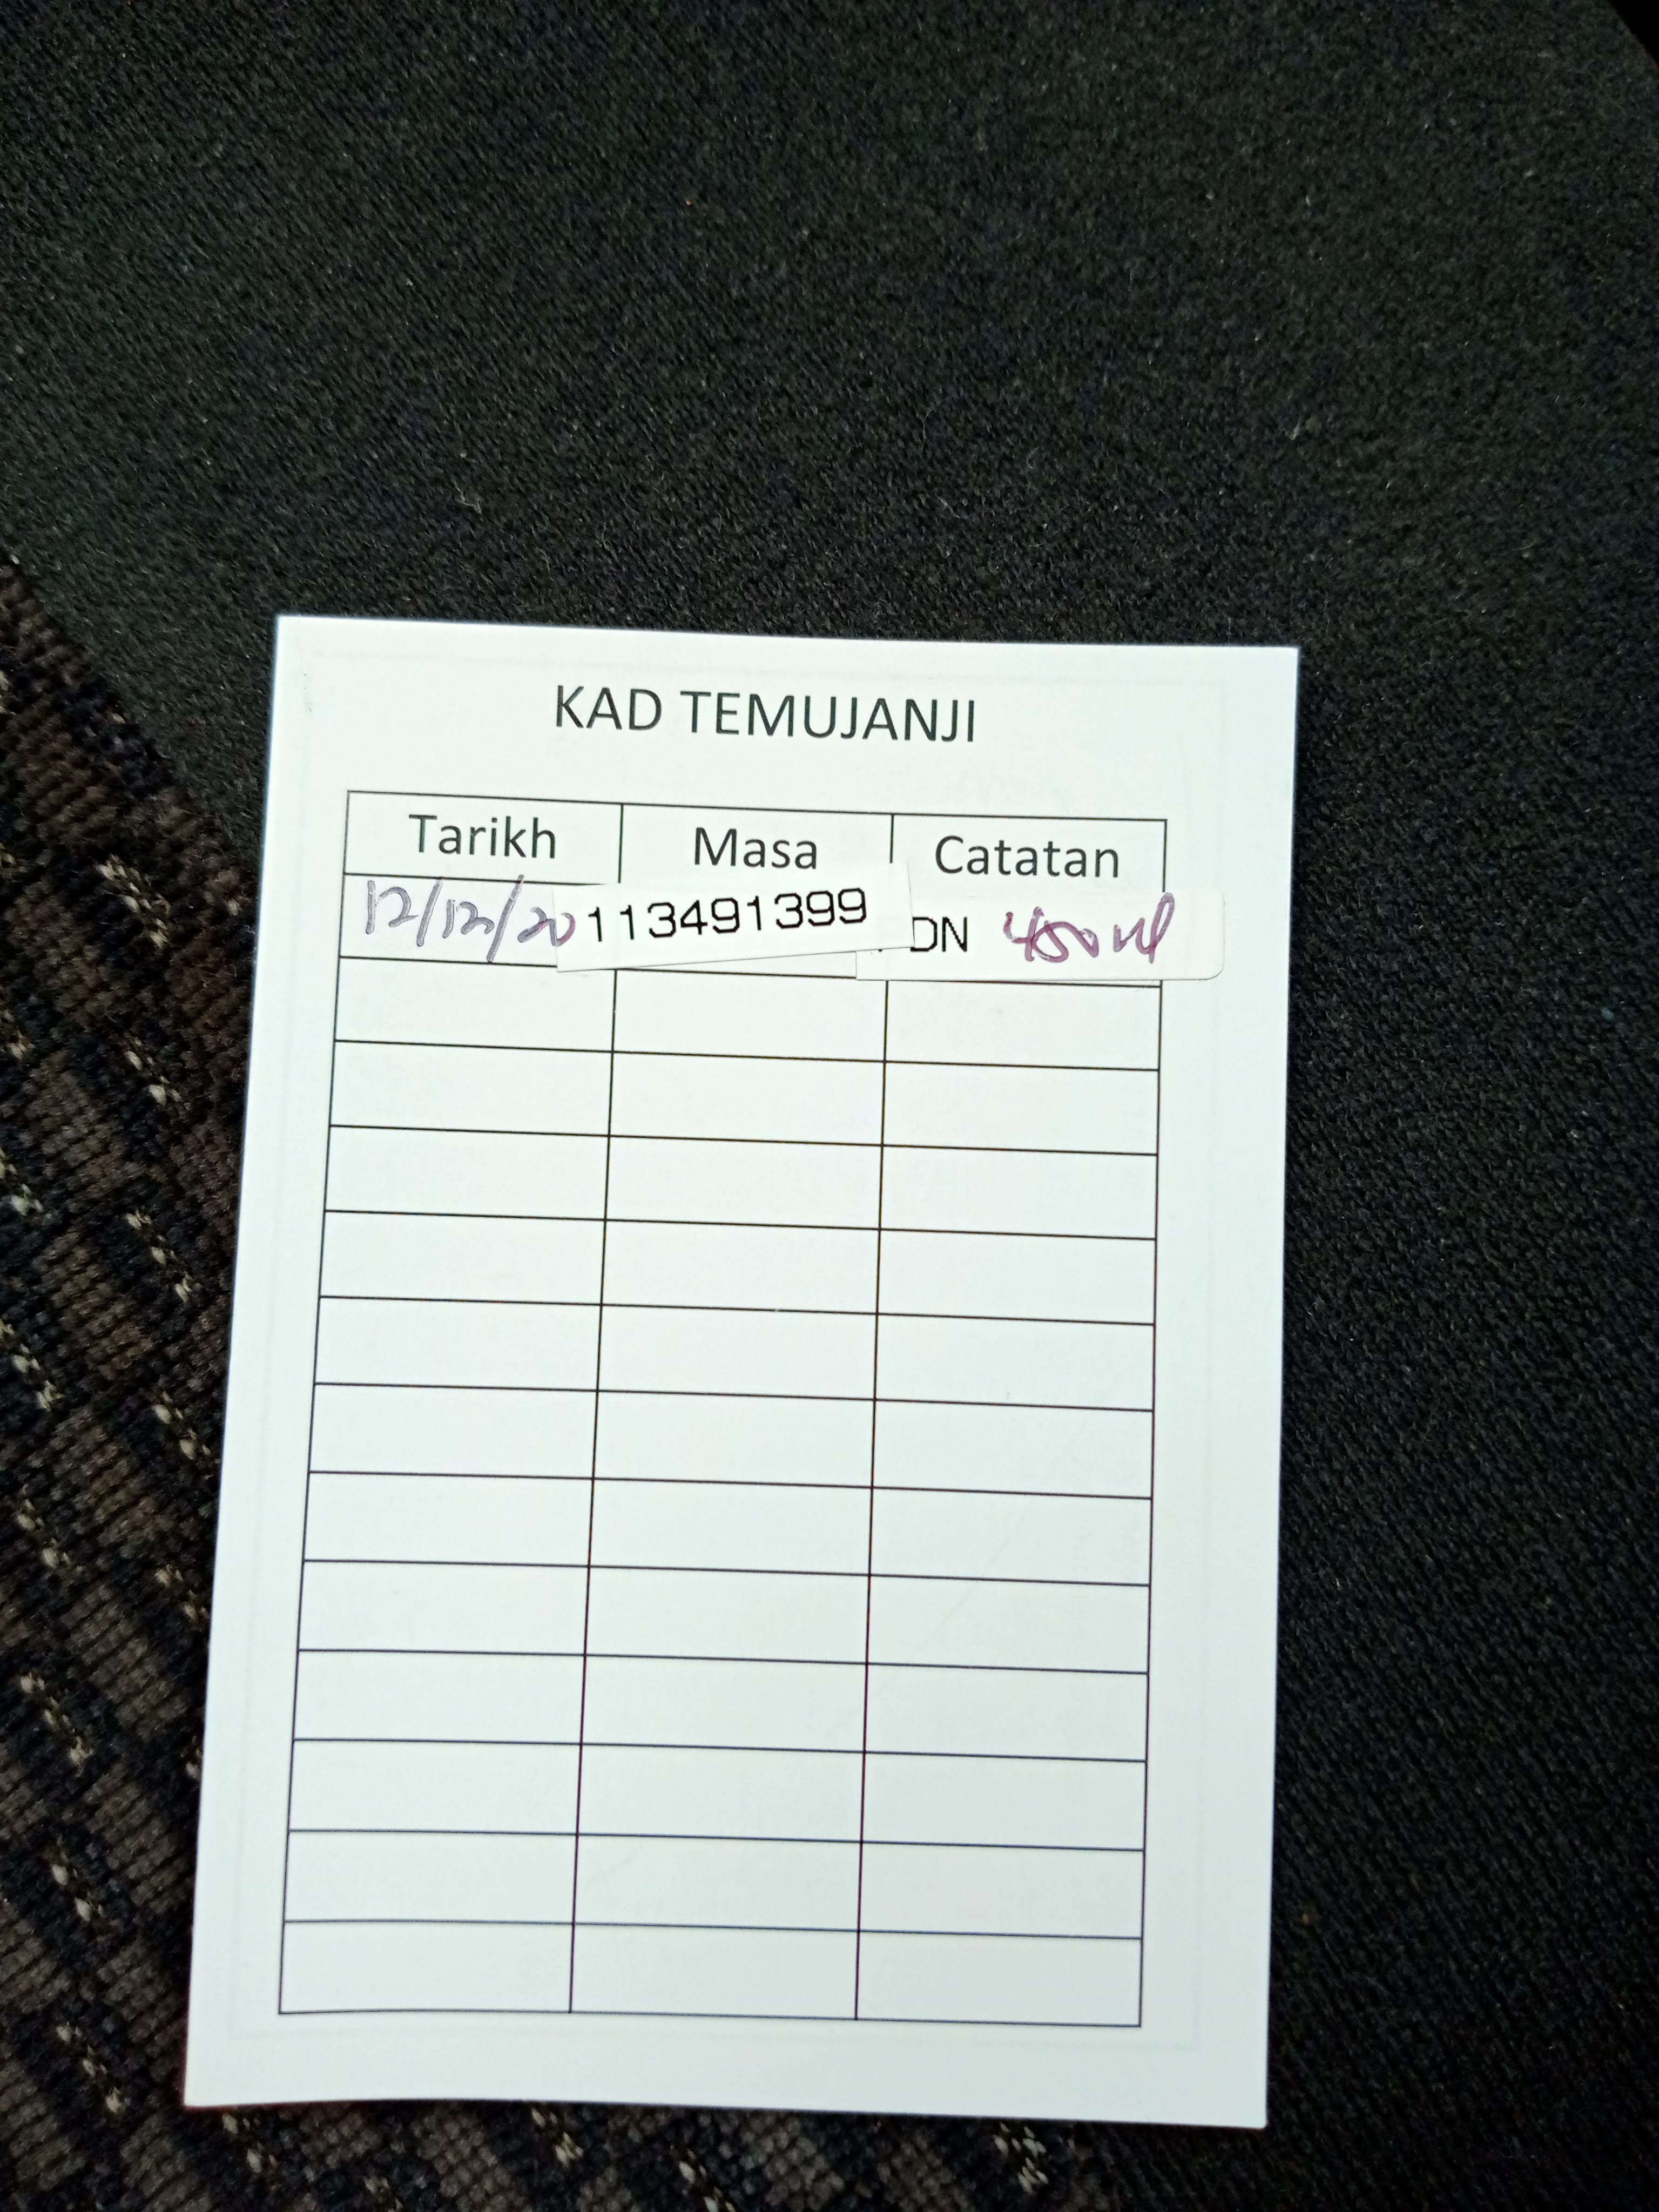 KAD TEMUJANJI
Tarikh Masa Catatan
12/12/20 113491399 DN 450ml